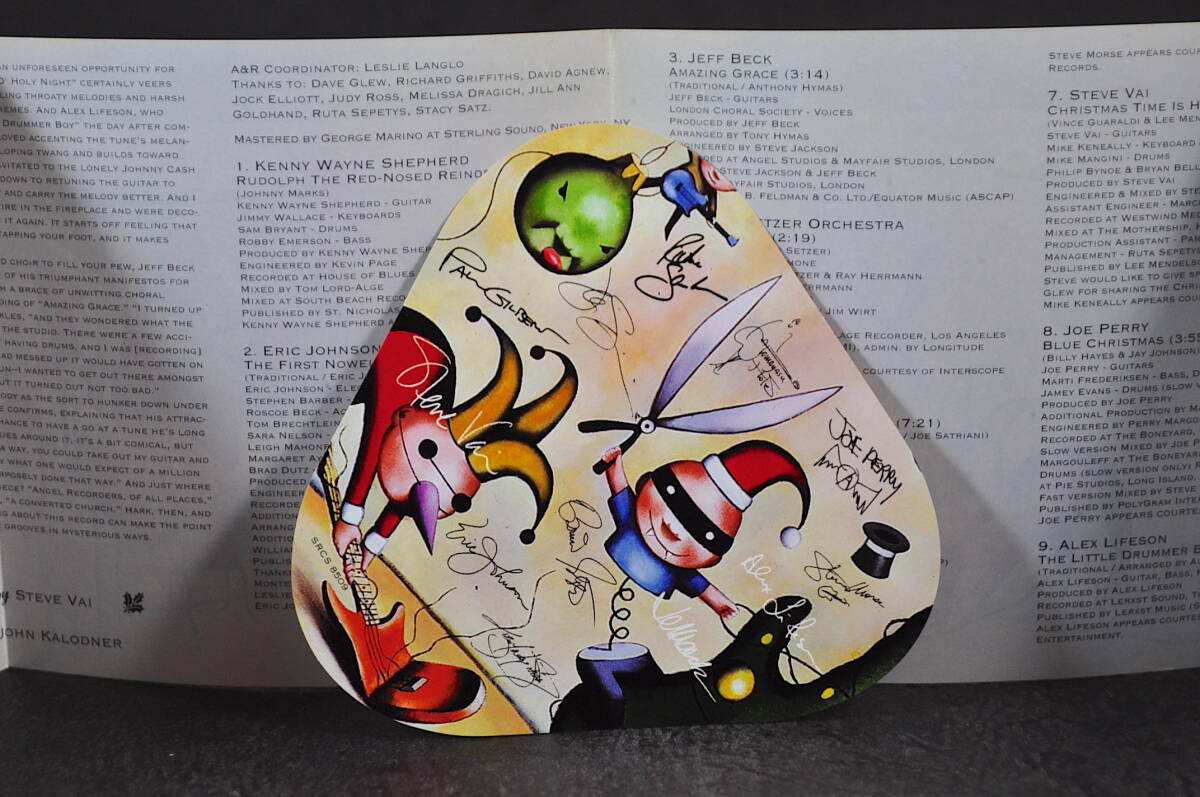 AN UNFORESEEN OPPORTUNITY FOR
O' HOLY NIGHT" CERTAINLY VEERS
LING THROATY MELODIES AND HARSH
HEMES. AND ALEX LIFESON, WHO
DRUMMER BOY" THE DAY AFTER COM-
LOVED ACCENTING THE TUNE'S MELAN-
LOPING TWANG AND BUILDS TOWARD
VITATED TO THE LONELY JOHNNY CASH
DOWN TO RETUNING THE GUITAR TO
AND CARRY THE MELODY BETTER. AND I
IRE IN THE FIREPLACE AND WERE DECO-
IT AGAIN. IT STARTS OFF FEELING THAT
TAPPING YOUR FOOT, AND IT MAKES
D CHOIR TO FILL YOUR PEW, JEFF BECK
OF HIS TRIUMPHANT MANIFESTOS FOR
H A BRACE OF UNWITTING CHORAL
DING OF "AMAZING GRACE." "I TURNED UP
KLES, "AND THEY WONDERED WHAT THE
THE STUDIO. THERE WERE A FEW ACCI-
HAVING DRUMS, AND I WAS [RECORDING]
AD MESSED UP IT WOULD HAVE GOTTEN ON
UN–I WANTED TO GET OUT THERE AMONGST
UT IT TURNED OUT NOT TOO BAD."
ODY AS THE SORT TO HUNKER DOWN UNDER
E CONFIRMS, EXPLAINING THAT HIS ATTRAC-
HANCE TO HAVE A GO AT A TUNE HE'S LONG
UES AROUND IT. IT'S A BIT COMICAL, BUT
A WAY, YOU COULD TAKE OUT MY GUITAR AND
Y WHAT ONE WOULD EXPECT OF A MILLION
RPOSELY DONE THAT WAY." AND JUST WHERE
IECE? "ANGEL RECORDERS, OF ALL PLACES,"
"A CONVERTED CHURCH." HARK, THEN, AND
G ABOUT THIS RECORD CAN MAKE THE POINT
GROOVES IN MYSTERIOUS WAYS.
BY STEVE VAI
JOHN KALODNER
A&R COORDINATOR: LESLIE LANGLO
THANKS TO: DAVE GLEW, RICHARD GRIFFITHS, DAVID AGNEW,
JOCK ELLIOTT, JUDY ROSS, MELISSA DRAGICH, JILL ANN
GOLDHAND, RUTA SEPETYS, STACY SATZ.
MASTERED BY GEORGE MARINO AT STERLING SOUND, NEW YORK, NY
1. KENNY WAYNE SHEPHERD
RUDOLPH THE RED-NOSED REINDE
(JOHNNY MARKS)
KENNY WAYNE SHEPHERD - GUITAR
JIMMY WALLACE - KEYBOARDS
SAM BRYANT - DRUMS
ROBBY EMERSON - BASS
PRODUCED BY KENNY WAYNE SHEP
ENGINEERED BY KEVIN PAGE
RECORDED AT HOUSE OF BLUES
MIXED BY TOM LORD-ALGE
MIXED AT SOUTH BEACH RECO
PUBLISHED BY ST. NICHOLAS
KENNY WAYNE SHEPHERD A
2. ERIC JOHNSON
THE FIRST NOWE
(TRADITIONAL / ERIC J
ERIC JOHNSON - ELE
STEPHEN BARBER -
ROSCOE BECK - AC
TOM BRECHTLEIN
SARA NELSON -
LEIGH MAHON
MARGARET AY
BRAD DUTZ
PRODUCED
ENGINEERE
RECORDE
ADDITION
ADDITION
ARRANG
ARRANG
WILLIAM
PUBLIS
THANK
MONTE
LESLIE
ERIC J
3. JEFF BECK
AMAZING GRACE (3:14)
(TRADITIONAL / ANTHONY HYMAS)
JEFF BECK - GUITARS
LONDON CHORAL SOCIETY - VOICES
PRODUCED BY JEFF BECK
ARRANGED BY TONY HYMAS
ENGINEERED BY STEVE JACKSON
ED AT ANGEL STUDIOS & MAYFAIR STUDIOS, LONDON
STEVE JACKSON & JEFF BECK
YFAIR STUDIOS, LONDON
B. FELDMAN & CO. LTD./EQUATOR MUSIC (ASCAP)
TZER ORCHESTRA
(2:19)
SETZER)
MONE
TZER & RAY HERRMANN
ERRMANN
JIM WIRT
AGE RECORDER, LOS ANGELES
MI), ADMIN. BY LONGITUDE
COURTESY OF INTERSCOPE
(7:21)
/ JOE SATRIANI)
STEVE MORSE APPEARS COU
RECORDS.
7. STEVE VAI
CHRISTMAS TIME IS H
(VINCE GUARALDI & LEE MEN
STEVE VAI - GUITARS
MIKE KENEALLY - KEYBOARD
MIKE MANGINI - DRUMS
PHILIP BYNOE & BRYAN BEL
PRODUCED BY STEVE VAI
ENGINEERED & MIXED BY STE
ASSISTANT ENGINEER - MARC
RECORDED AT WESTWIND ME
MIXED AT THE MOTHERSHIP, H
PRODUCTION ASSISTANT - PAM
MANAGEMENT - RUTA SEPETY
PUBLISHED BY LEE MENDELS
STEVE WOULD LIKE TO GIVE S
GLEW FOR SHARING THE CHR
MIKE KENEALLY APPEARS COU
8. JOE PERRY
BLUE CHRISTMAS (3:55
(BILLY HAYES & JAY JOHNSON
JOE PERRY - GUITARS
MARTI FREDERIKSEN - BASS, D
JAMEY EVANS - DRUMS (SLOW
PRODUCED BY JOE PERRY
ADDITIONAL PRODUCTION BY M
ENGINEERED BY PERRY MARGO
RECORDED AT THE BONEYARD,
SLOW VERSION MIXED BY JOE P
MARGOULEFF AT THE BONEYAR
DRUMS (SLOW VERSION ONLY)
AT PIE STUDIOS, LONG ISLAND,
FAST VERSION MIXED BY STEVE
PUBLISHED BY POLYGRAM INTE
JOE PERRY APPEARS COURTE
9. ALEX LIFESON
THE LITTLE DRUMMER B
(TRADITIONAL / ARRANGED BY AL
ALEX LIFESON - GUITAR, BASS,
RECORDED AT LERXST SOUND, T
PUBLISHED BY LERXST MUSIC (
ALEX LIFESON APPEARS COURTE
ENTERTAINMENT.
PAUL GILBERT
Steve Vai
JOE PERRY
Eric Johnson
Alex Lifeson
Steve Morse
SRCS 8509